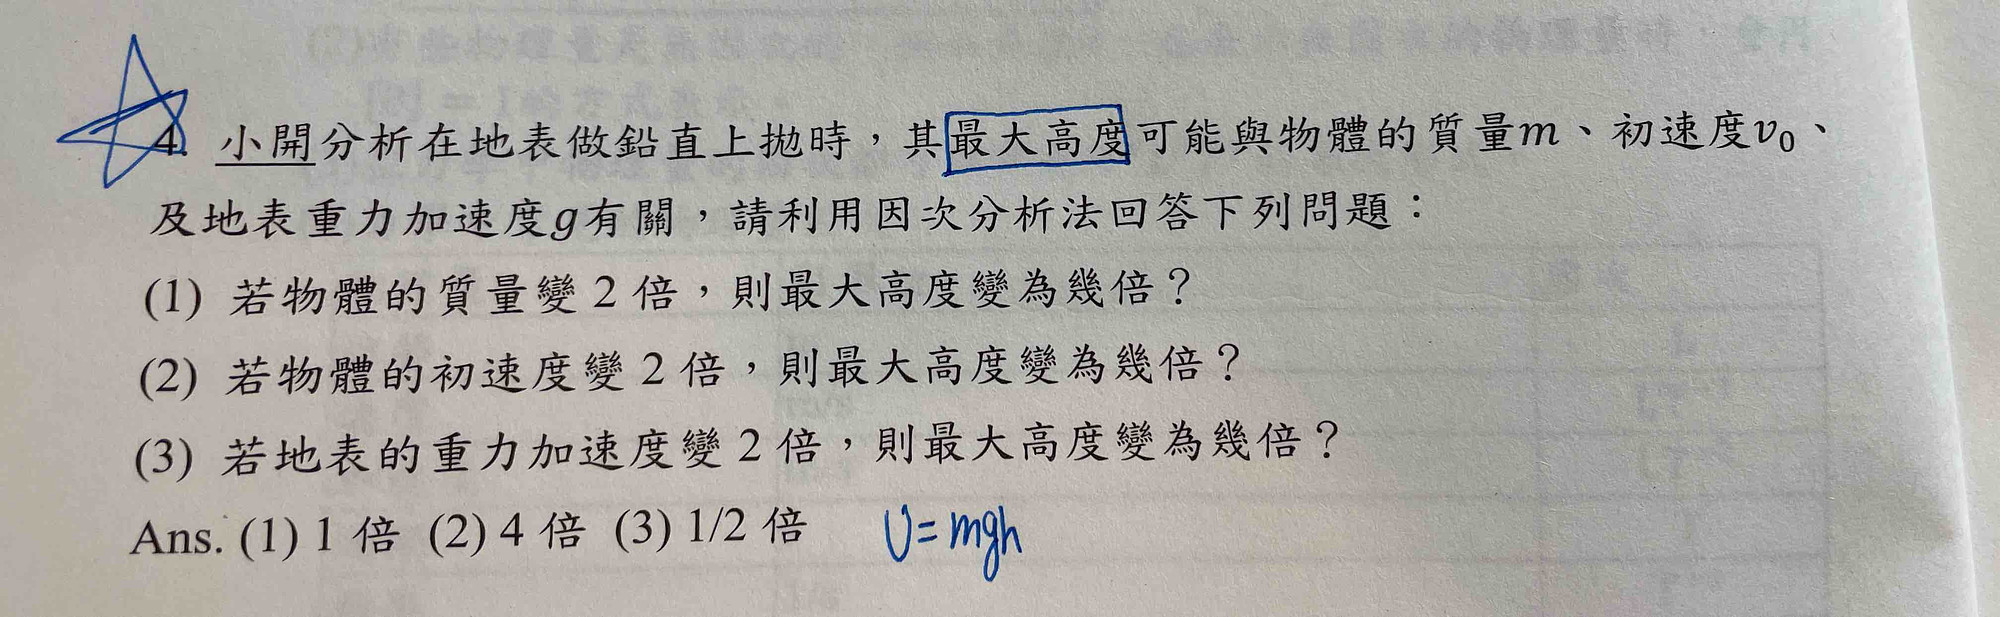 4. 小開分析在地表做鉛直上拋時，其最大高度可能與物體的質量m、初速度v₀、
及地表重力加速度g有關，請利用因次分析法回答下列問題：
(1) 若物體的質量變 2 倍，則最大高度變為幾倍？
(2) 若物體的初速度變 2 倍，則最大高度變為幾倍？
(3) 若地表的重力加速度變 2 倍，則最大高度變為幾倍？
Ans. (1) 1 倍 (2) 4 倍 (3) 1/2 倍 U=mgh